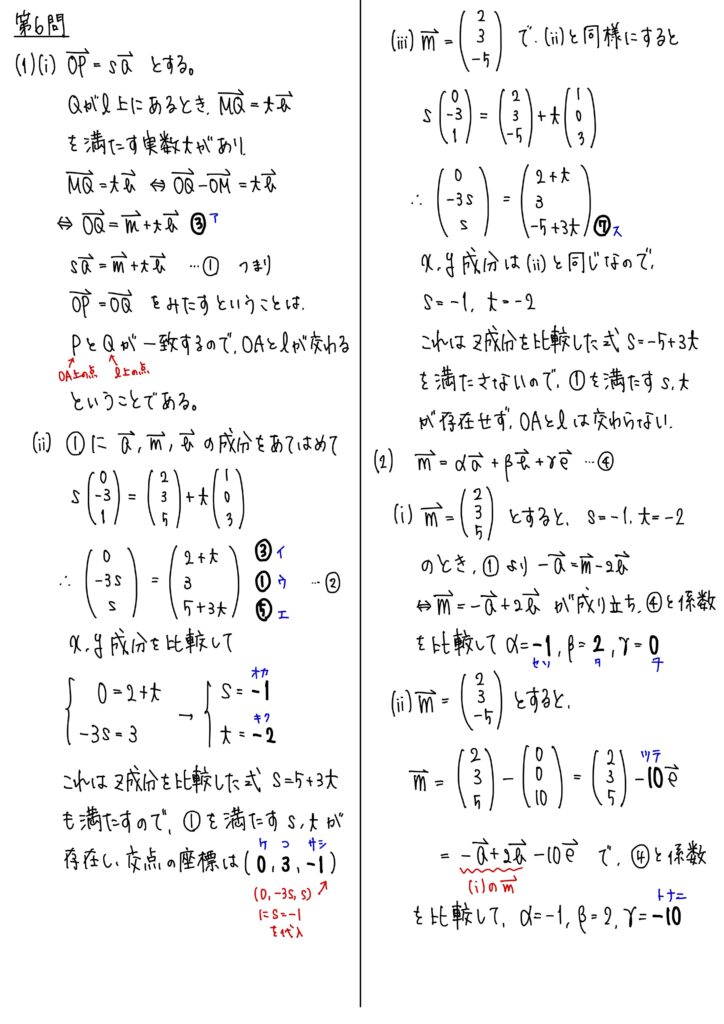 第6問
(1)(i) OP→ = sa→ とする。
Qがl上にあるとき、MQ→ = tb→
を満たす実数tがあり、
MQ→ = tb→ ⇔ OQ→ - OM→ = tb→
⇔ OQ→ = m→ + tb→ ③ ア
sa→ = m→ + tb→ …① つまり
OP→ = OQ→ をみたすということは、
PとQが一致するので、OAとlが交わる
OA上の点 l上の点
ということである。
(ii) ①に a→, m→, b→ の成分をあてはめて
s(0, -3, 1) = (2, 3, 5) + t(1, 0, 3)
∴ (0, -3s, s) = (2+t, 3, 5+3t) ③イ ①ウ ⑤エ …②
x, y成分を比較して
{ 0 = 2+t, -3s = 3 → { s = -1 オカ, t = -2 キク
これはz成分を比較した式 s=5+3t
も満たすので、①を満たす s, t が
ケ コ サシ
存在し、交点の座標は (0, 3, -1)
(0, -3s, s)
にs=-1
を代入
(iii) m→ = (2, 3, -5) で、(ii)と同様にすると
s(0, -3, 1) = (2, 3, -5) + t(1, 0, 3)
∴ (0, -3s, s) = (2+t, 3, -5+3t) ⑦ス
x, y成分は(ii)と同じなので、
s = -1, t = -2
これはz成分を比較した式 s=-5+3t
を満たさないので、①を満たす s, t
が存在せず、OAとlは交わらない.
(2) m→ = αa→ + βb→ + γe→ …④
(i) m→ = (2, 3, 5) とすると、s=-1, t=-2
のとき、①より -a→ = m→ - 2b→
⇔ m→ = -a→ + 2b→ が成り立ち、④と係数
を比較して α=-1, β=2, γ=0
セソ タ チ
(ii) m→ = (2, 3, -5) とすると、
ツテ
m→ = (2, 3, 5) - (0, 0, 10) = (2, 3, 5) - 10e→
= -a→ + 2b→ - 10e→ で、④と係数
(i)のm→
トナニ
を比較して、α=-1, β=2, γ=-10